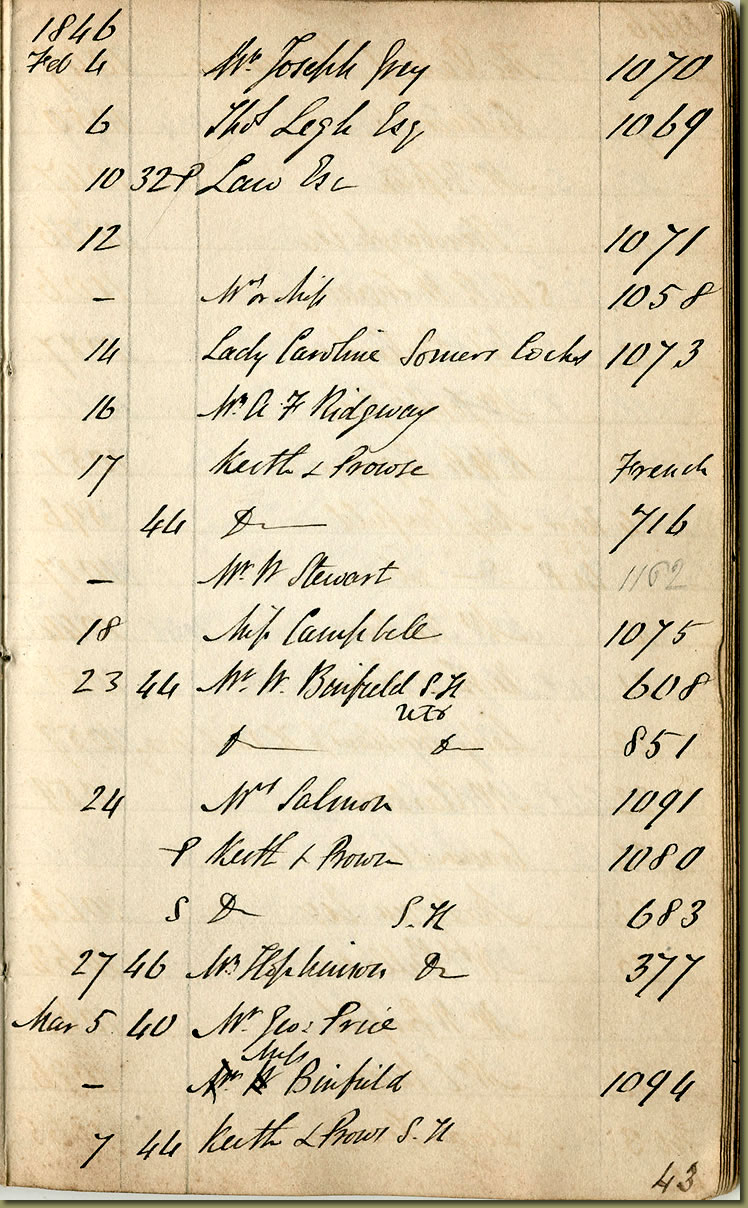 1846
Feb 4 Mr. Joseph Grey 1070
6 Thos Legh Esq 1069
10 32 P Law Esq
12 1071
– Mrs or Miss 1058
14 Lady Caroline Somers Cocks 1073
16 Mr. A F Ridgway
17 Keith & Prowse French
44 Do 716
– Mr. W Stewart 1162
18 Miss Campbell 1075
23 44 Mr. W. Binfield S.H 608
Do Do 851
24 Mrs Salmon 1091
P Keith & Prowse 1080
S Do S.H 683
27 46 Mr Hopkinson Do 377
Mar 5 40 Mr. Geo: Price
Miss
– Binfield 1094
7 44 Keith & Prowse S.H
43